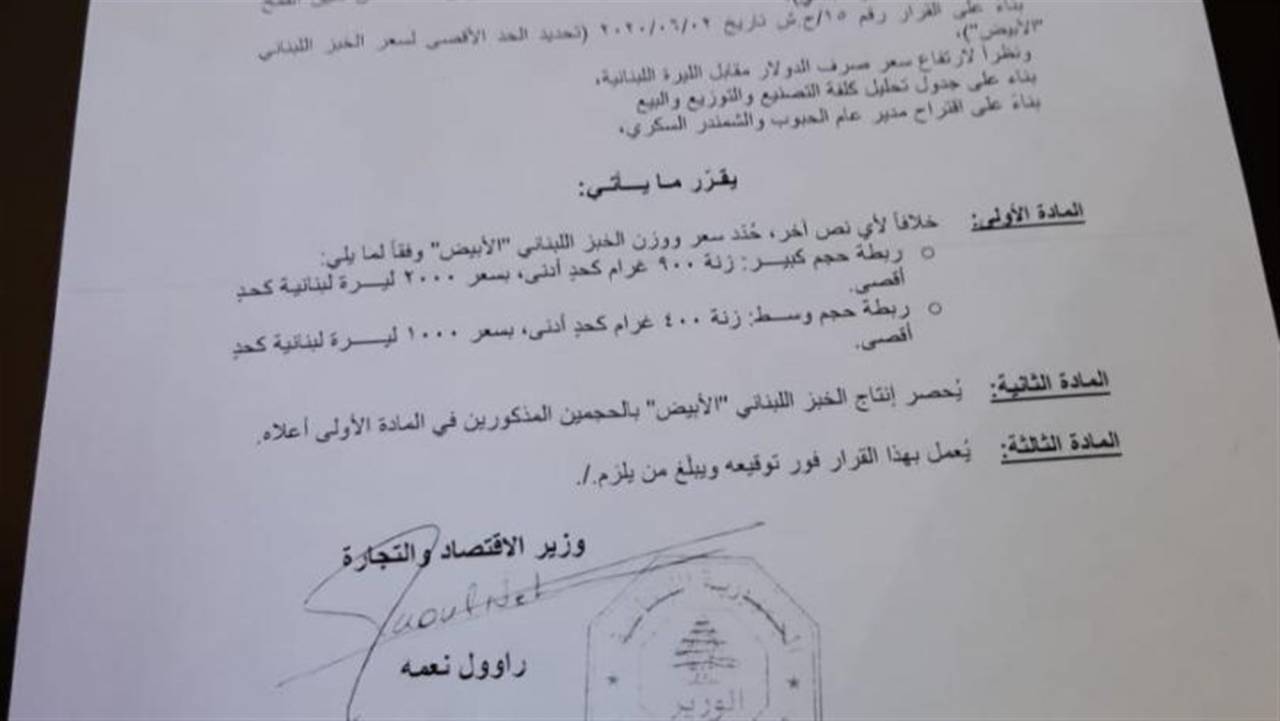 بناء على القرار رقم ١٥/ح.ش تاريخ ٢٠٢٠/٠٦/٠٢ (تحديد الحد الأقصى لسعر الخبز اللبناني
"الأبيض")،
ونظراً لارتفاع سعر صرف الدولار مقابل الليرة اللبنانية،
بناء على جدول تحليل كلفة التصنيع والتوزيع والبيع
بناءً على اقتراح مدير عام الحبوب والشمندر السكري،
يقرّر ما يأتي:
المادة الأولى: خلافاً لأي نص آخر، حُدد سعر ووزن الخبز اللبناني "الأبيض" وفقاً لما يلي:
○ ربطة حجم كبير: زنة ٩٠٠ غرام كحدٍ أدنى، بسعر ٢٠٠٠ ليرة لبنانية كحدٍ
أقصى.
○ ربطة حجم وسط: زنة ٤٠٠ غرام كحدٍ أدنى، بسعر ١٠٠٠ ليرة لبنانية كحدٍ
أقصى.
المادة الثانية: يُحصر إنتاج الخبز اللبناني "الأبيض" بالحجمين المذكورين في المادة الأولى أعلاه.
المادة الثالثة: يُعمل بهذا القرار فور توقيعه ويبلغ من يلزم./.
وزير الاقتصاد والتجارة
راوول نعمه
الوزير